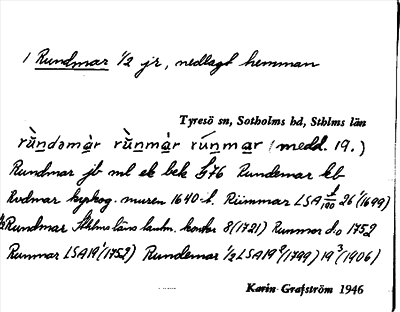 1 Rundmar 1/2 jr, nedlagt hemman
Tyresö sn, Sotholms hd, Sthlms län
rùndəmàr rùnmàr rúnmar (medd. 19.)
Rundmar jb ml ek bek 576 Rundemar kb
Rudmar hyskog. muren 1640-t. Rümmar LSA 26 1(1699)
1/2 Rundmar Sthlms läns lantm. kontor 8(1721) Runmar d:o 1752
Runmar LSA 19 1(1752) Rundemar 1/2 LSA 19 2(1799) 19 3(1906)
Karin Grafström 1946